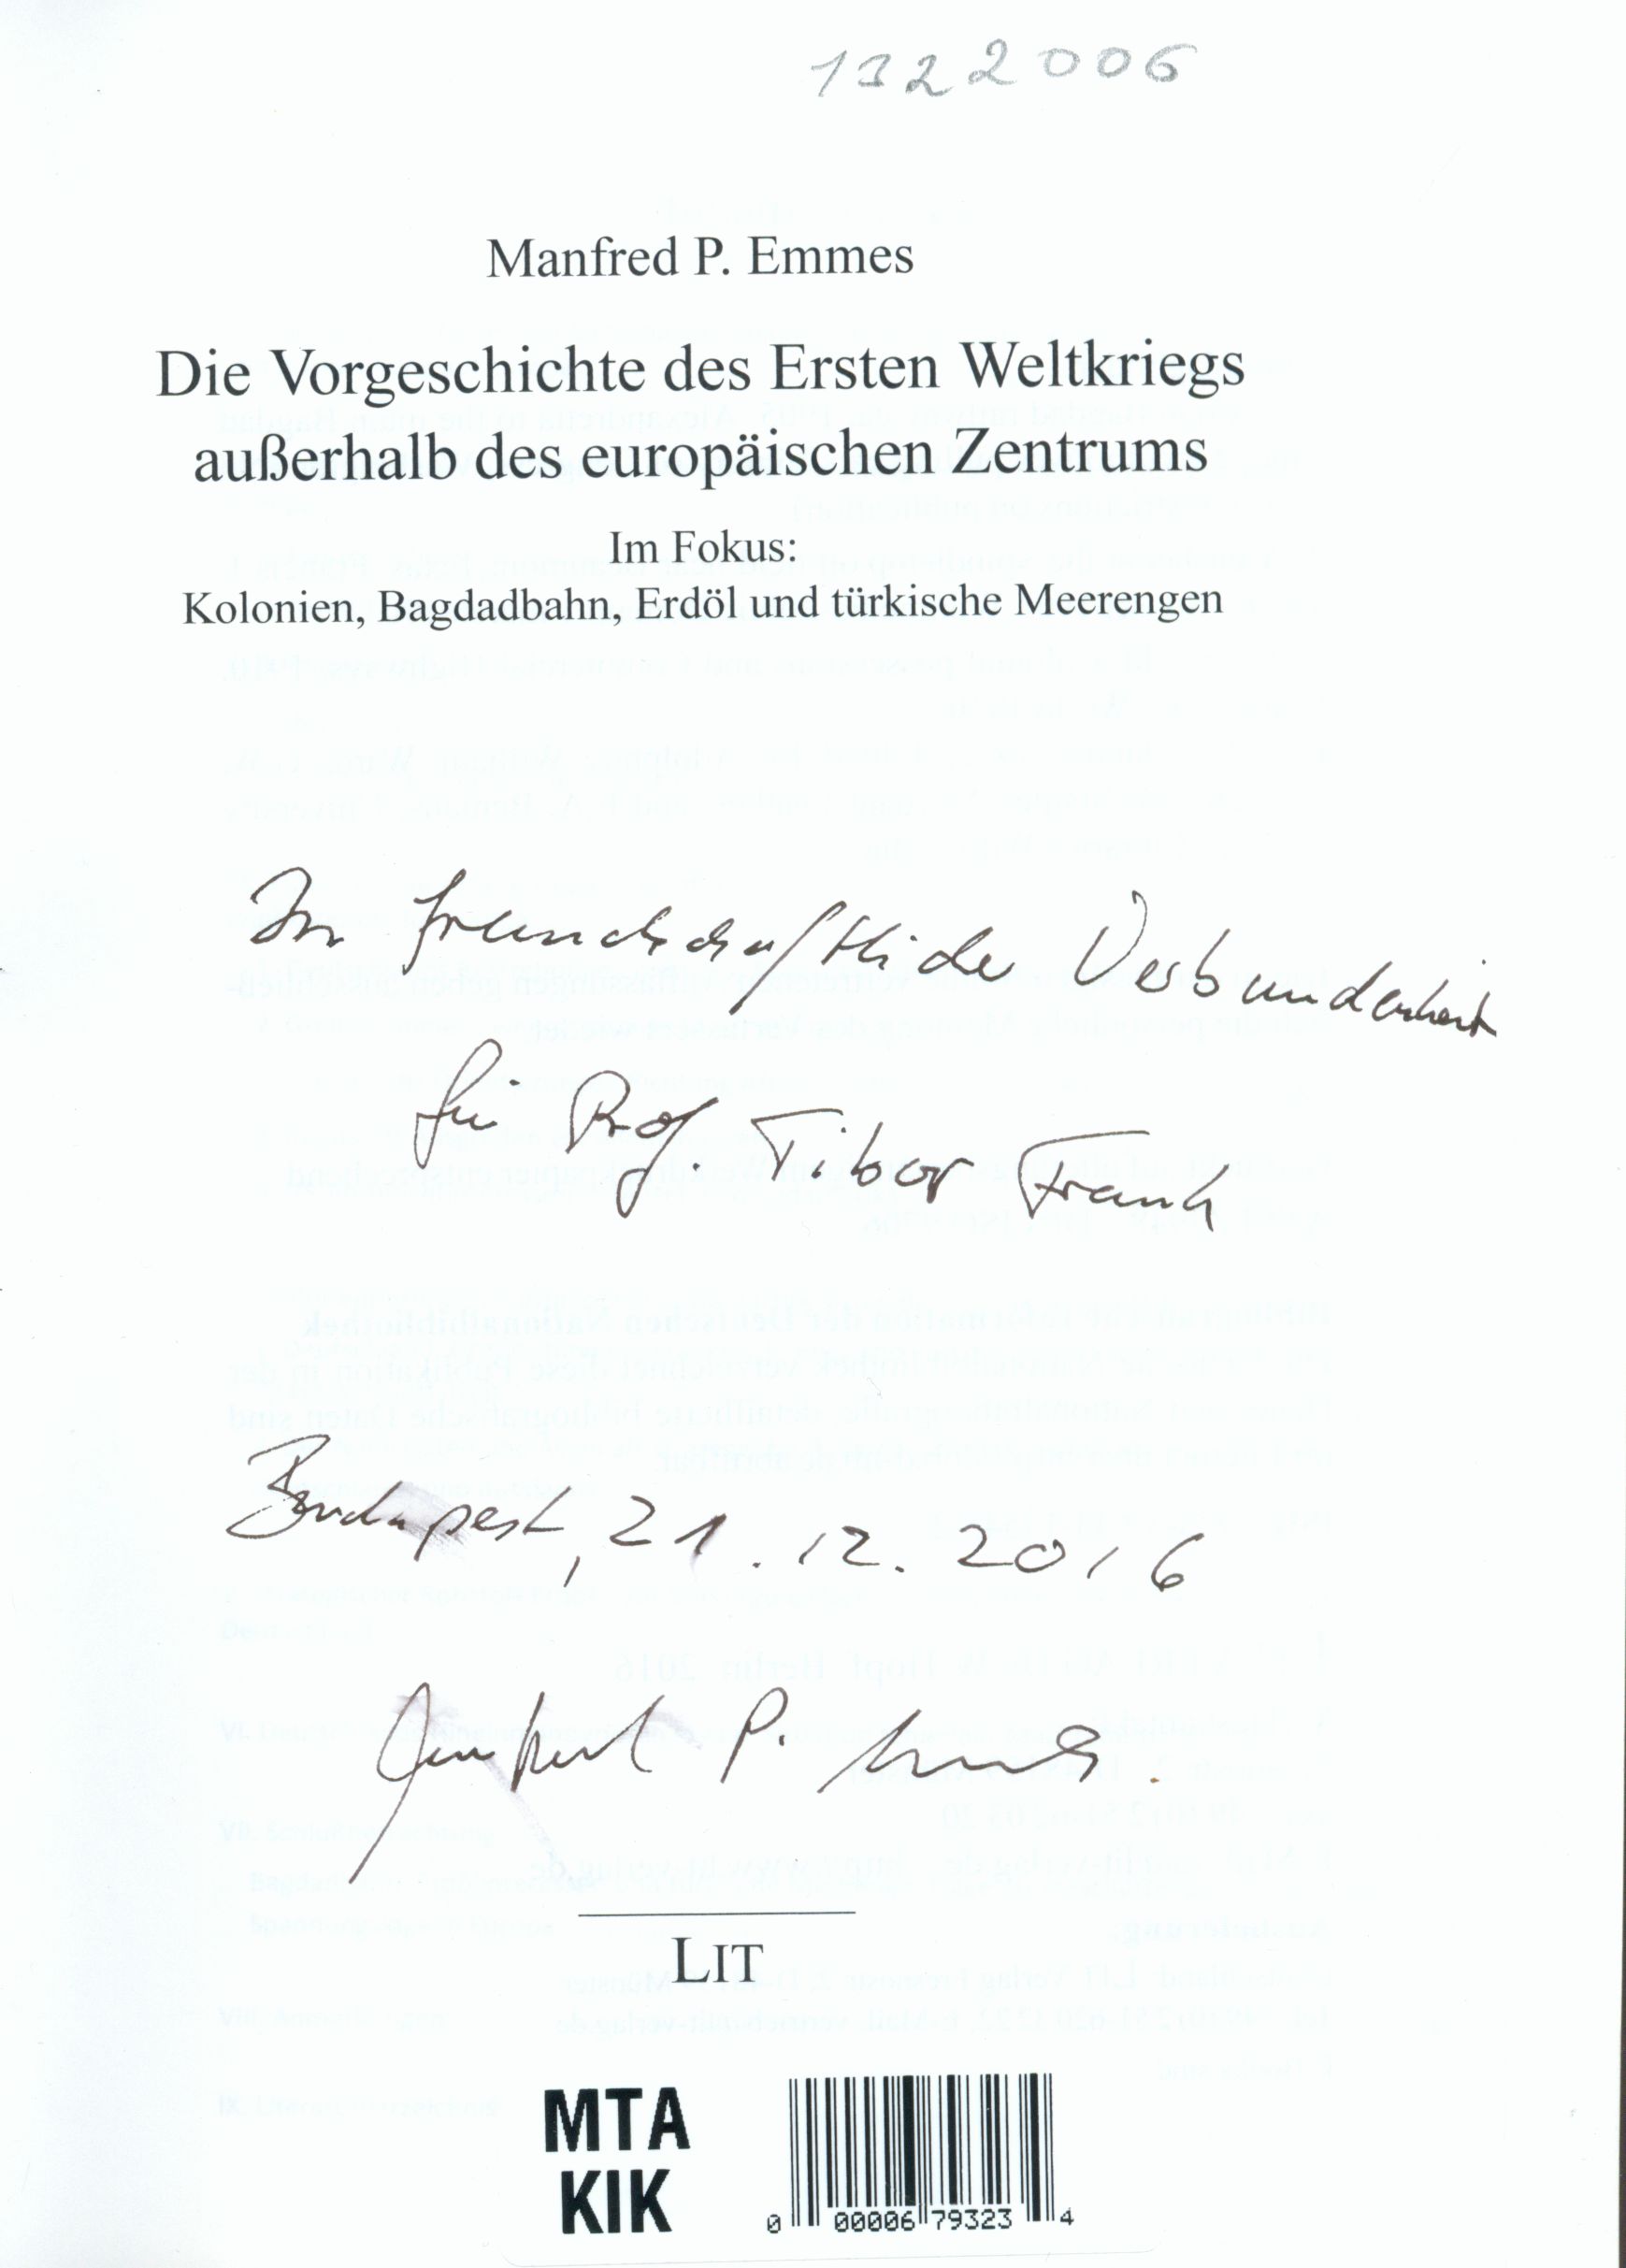 1322006
Manfred P. Emmes
Die Vorgeschichte des Ersten Weltkriegs
außerhalb des europäischen Zentrums
Im Fokus:
Kolonien, Bagdadbahn, Erdöl und türkische Meerengen
In freundschaftlicher Verbundenheit
für Prof. Tibor Frank
Budapest, 21. 12. 2016
Manfred P. Emmes
LIT
MTA
KIK
0 00006 79323 4